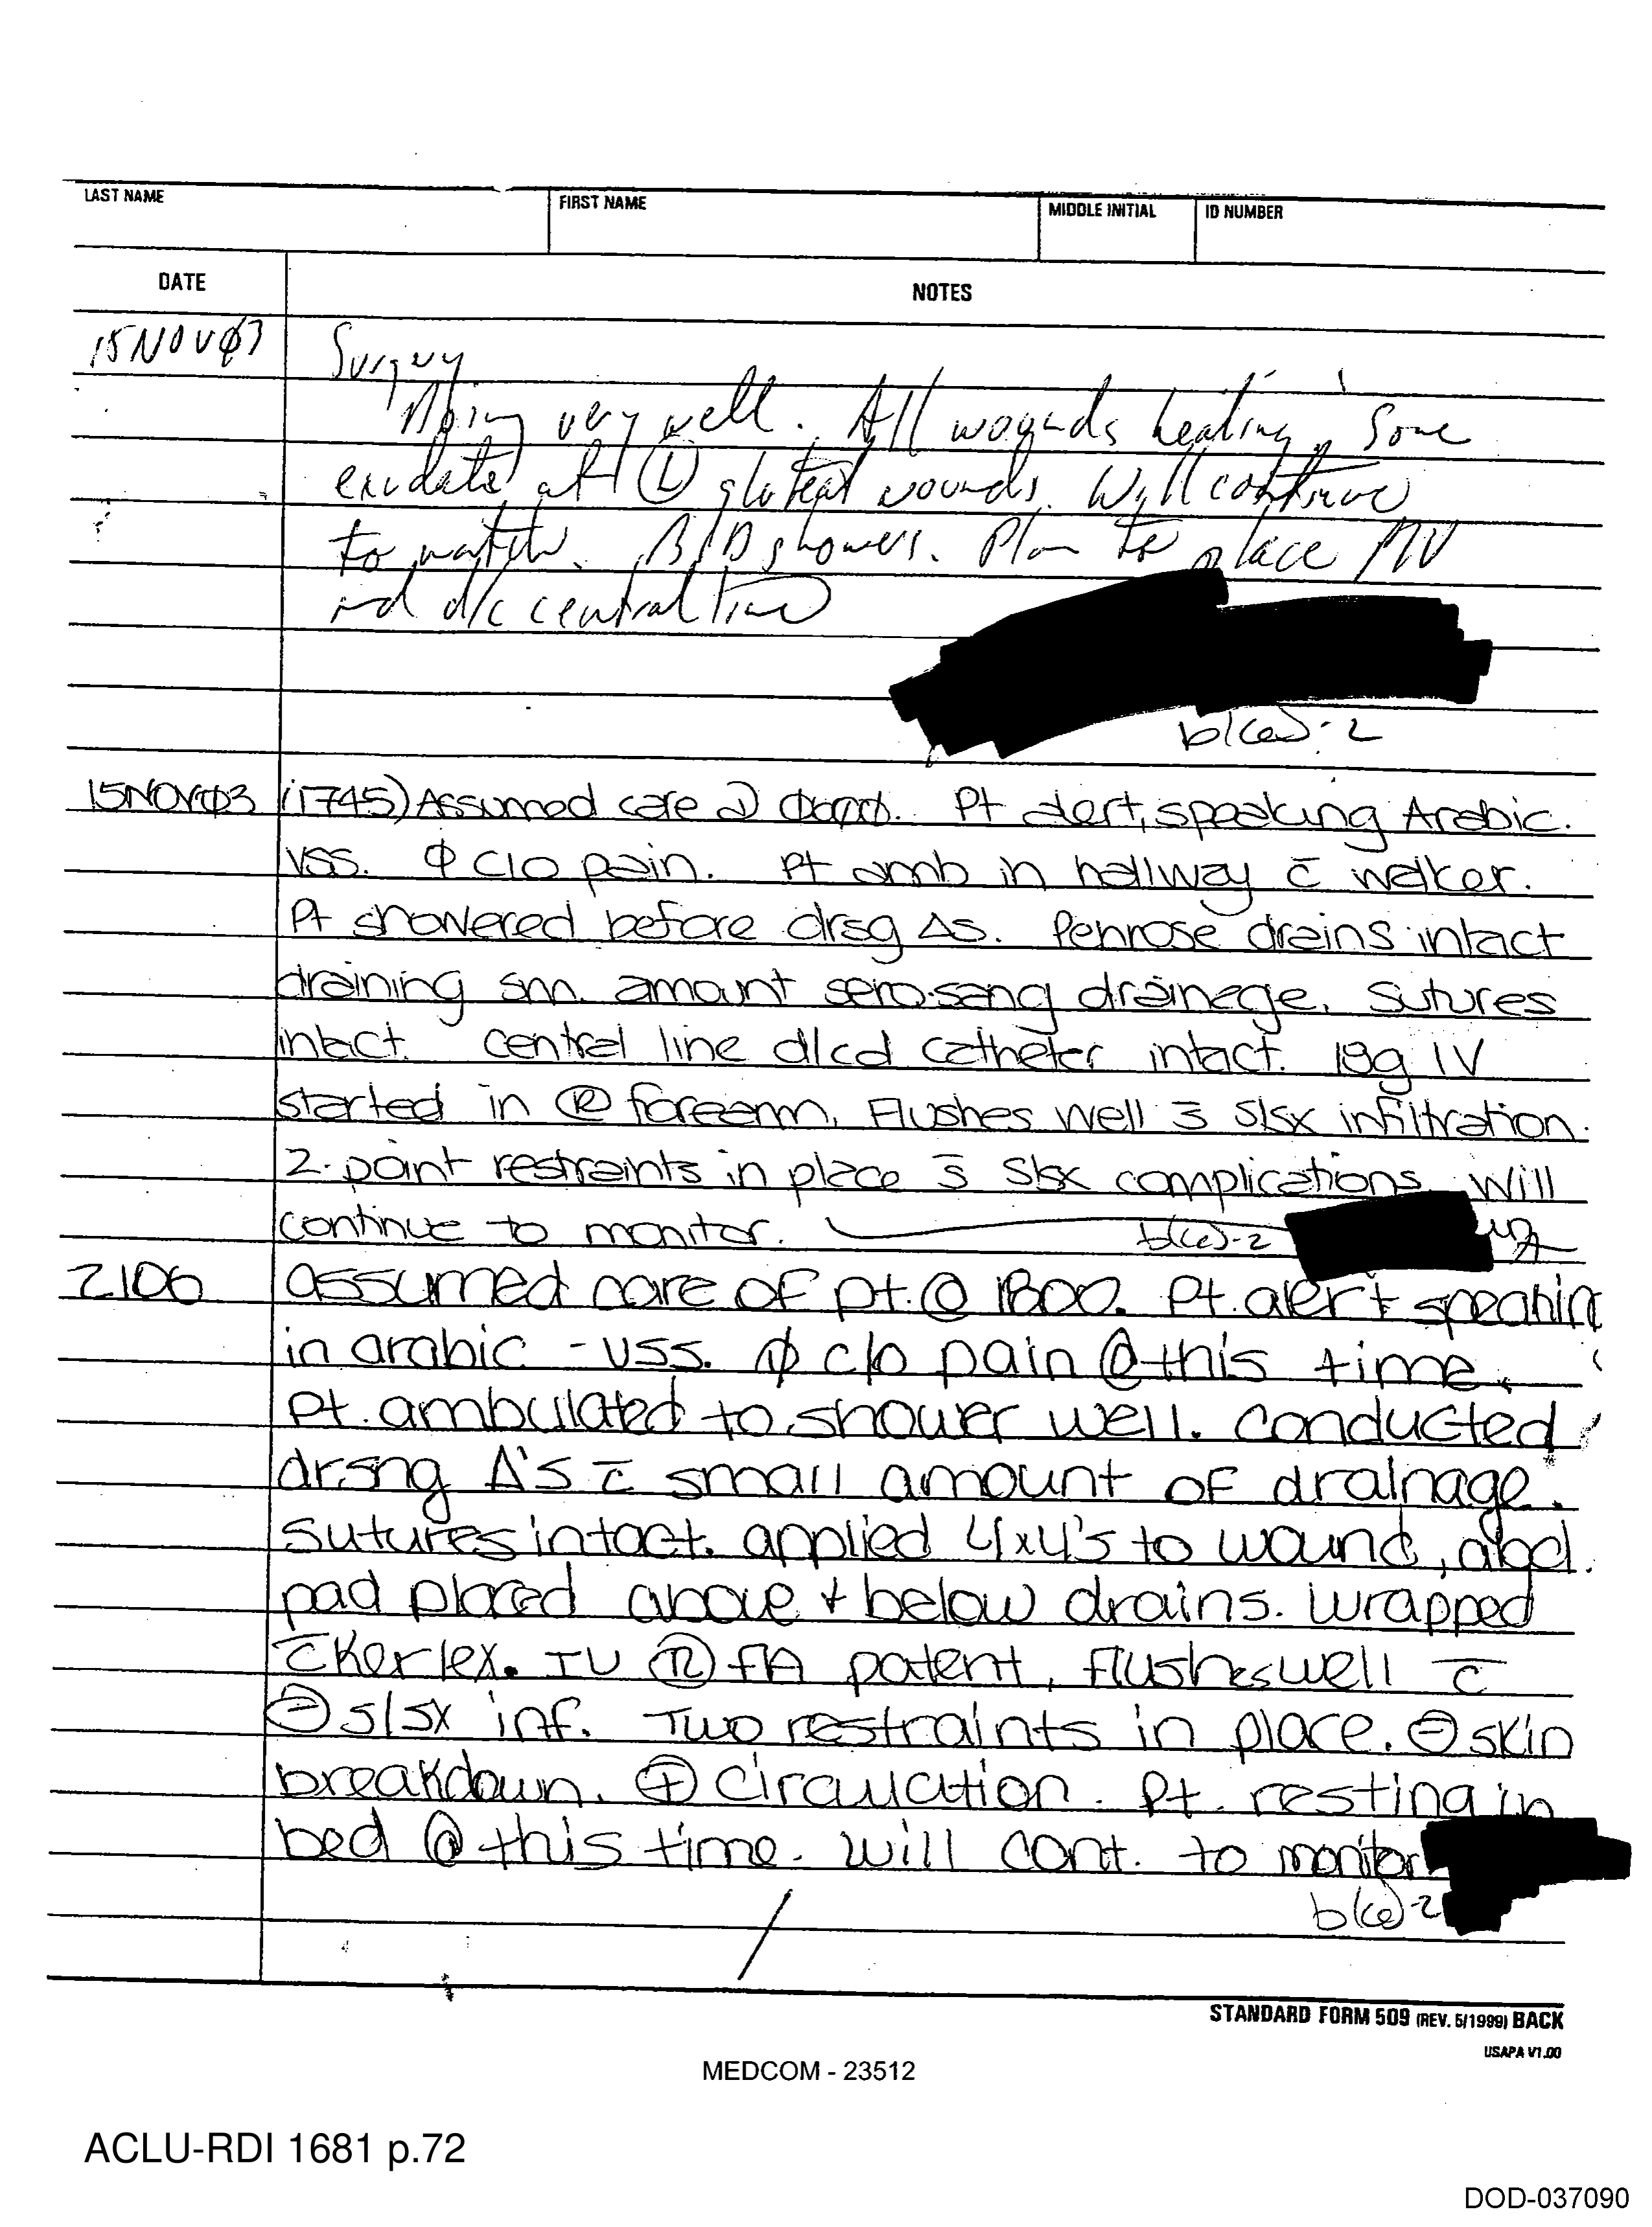 LAST NAME FIRST NAME MIDDLE INITIAL ID NUMBER
DATE NOTES
15NOVØ3 Surgery
Doing very well. All wounds healing, some
exudate at Ⓛ gluteal wounds. Will continue
to watch. BID showers. Plan to place PIV
and d/c central line
b(6)-2
15NOVØ3 (1745) Assumed care @ Pt alert, speaking Arabic.
VSS. Ø C/O pain. Pt amb in hallway c̄ walker.
Pt showered before drsg Δs. Penrose drains intact
draining sm. amount sero-sang drainage. Sutures
intact. Central line d/cd catheter intact. 18g IV
started in Ⓡ forearm. Flushes well s̄ s/sx infiltration.
2-point restraints in place s̄ s/sx complications. Will
continue to monitor. b(6)-2
2106 assumed care of pt. @ 1800. Pt. alert speaking
in arabic - VSS. Ø c/o pain @ this time.
Pt. ambulated to shower well. conducted
drsng Δ's c̄ small amount of drainage.
Sutures intact. applied 4x4's to wound, abd.
pad placed above + below drains. wrapped
c̄ Kerlex. IV Ⓡ FA patent, flushes well c̄
⊖ s/sx inf. Two restraints in place. ⊖ skin
breakdown. ⊕ circulation. Pt. resting in
bed @ this time. will cont. to monitor
b(6)-2
STANDARD FORM 509 (REV. 5/1999) BACK
USAPA V1.00
MEDCOM - 23512
ACLU-RDI 1681 p.72
DOD-037090